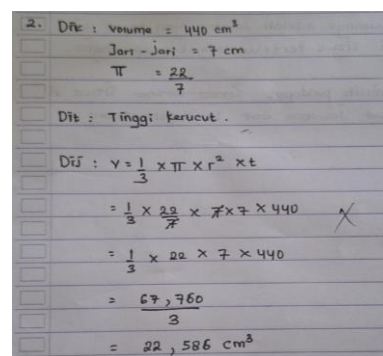 2. Dik : Volume = 440 cm³
Jari-jari = 7 cm
π = 22/7
Dit : Tinggi kerucut.
Dij : V = 1/3 × π × r² × t
= 1/3 × 22/7 × 7 × 7 × 440
= 1/3 × 22 × 7 × 440
= 67,760/3
= 22,586 cm³